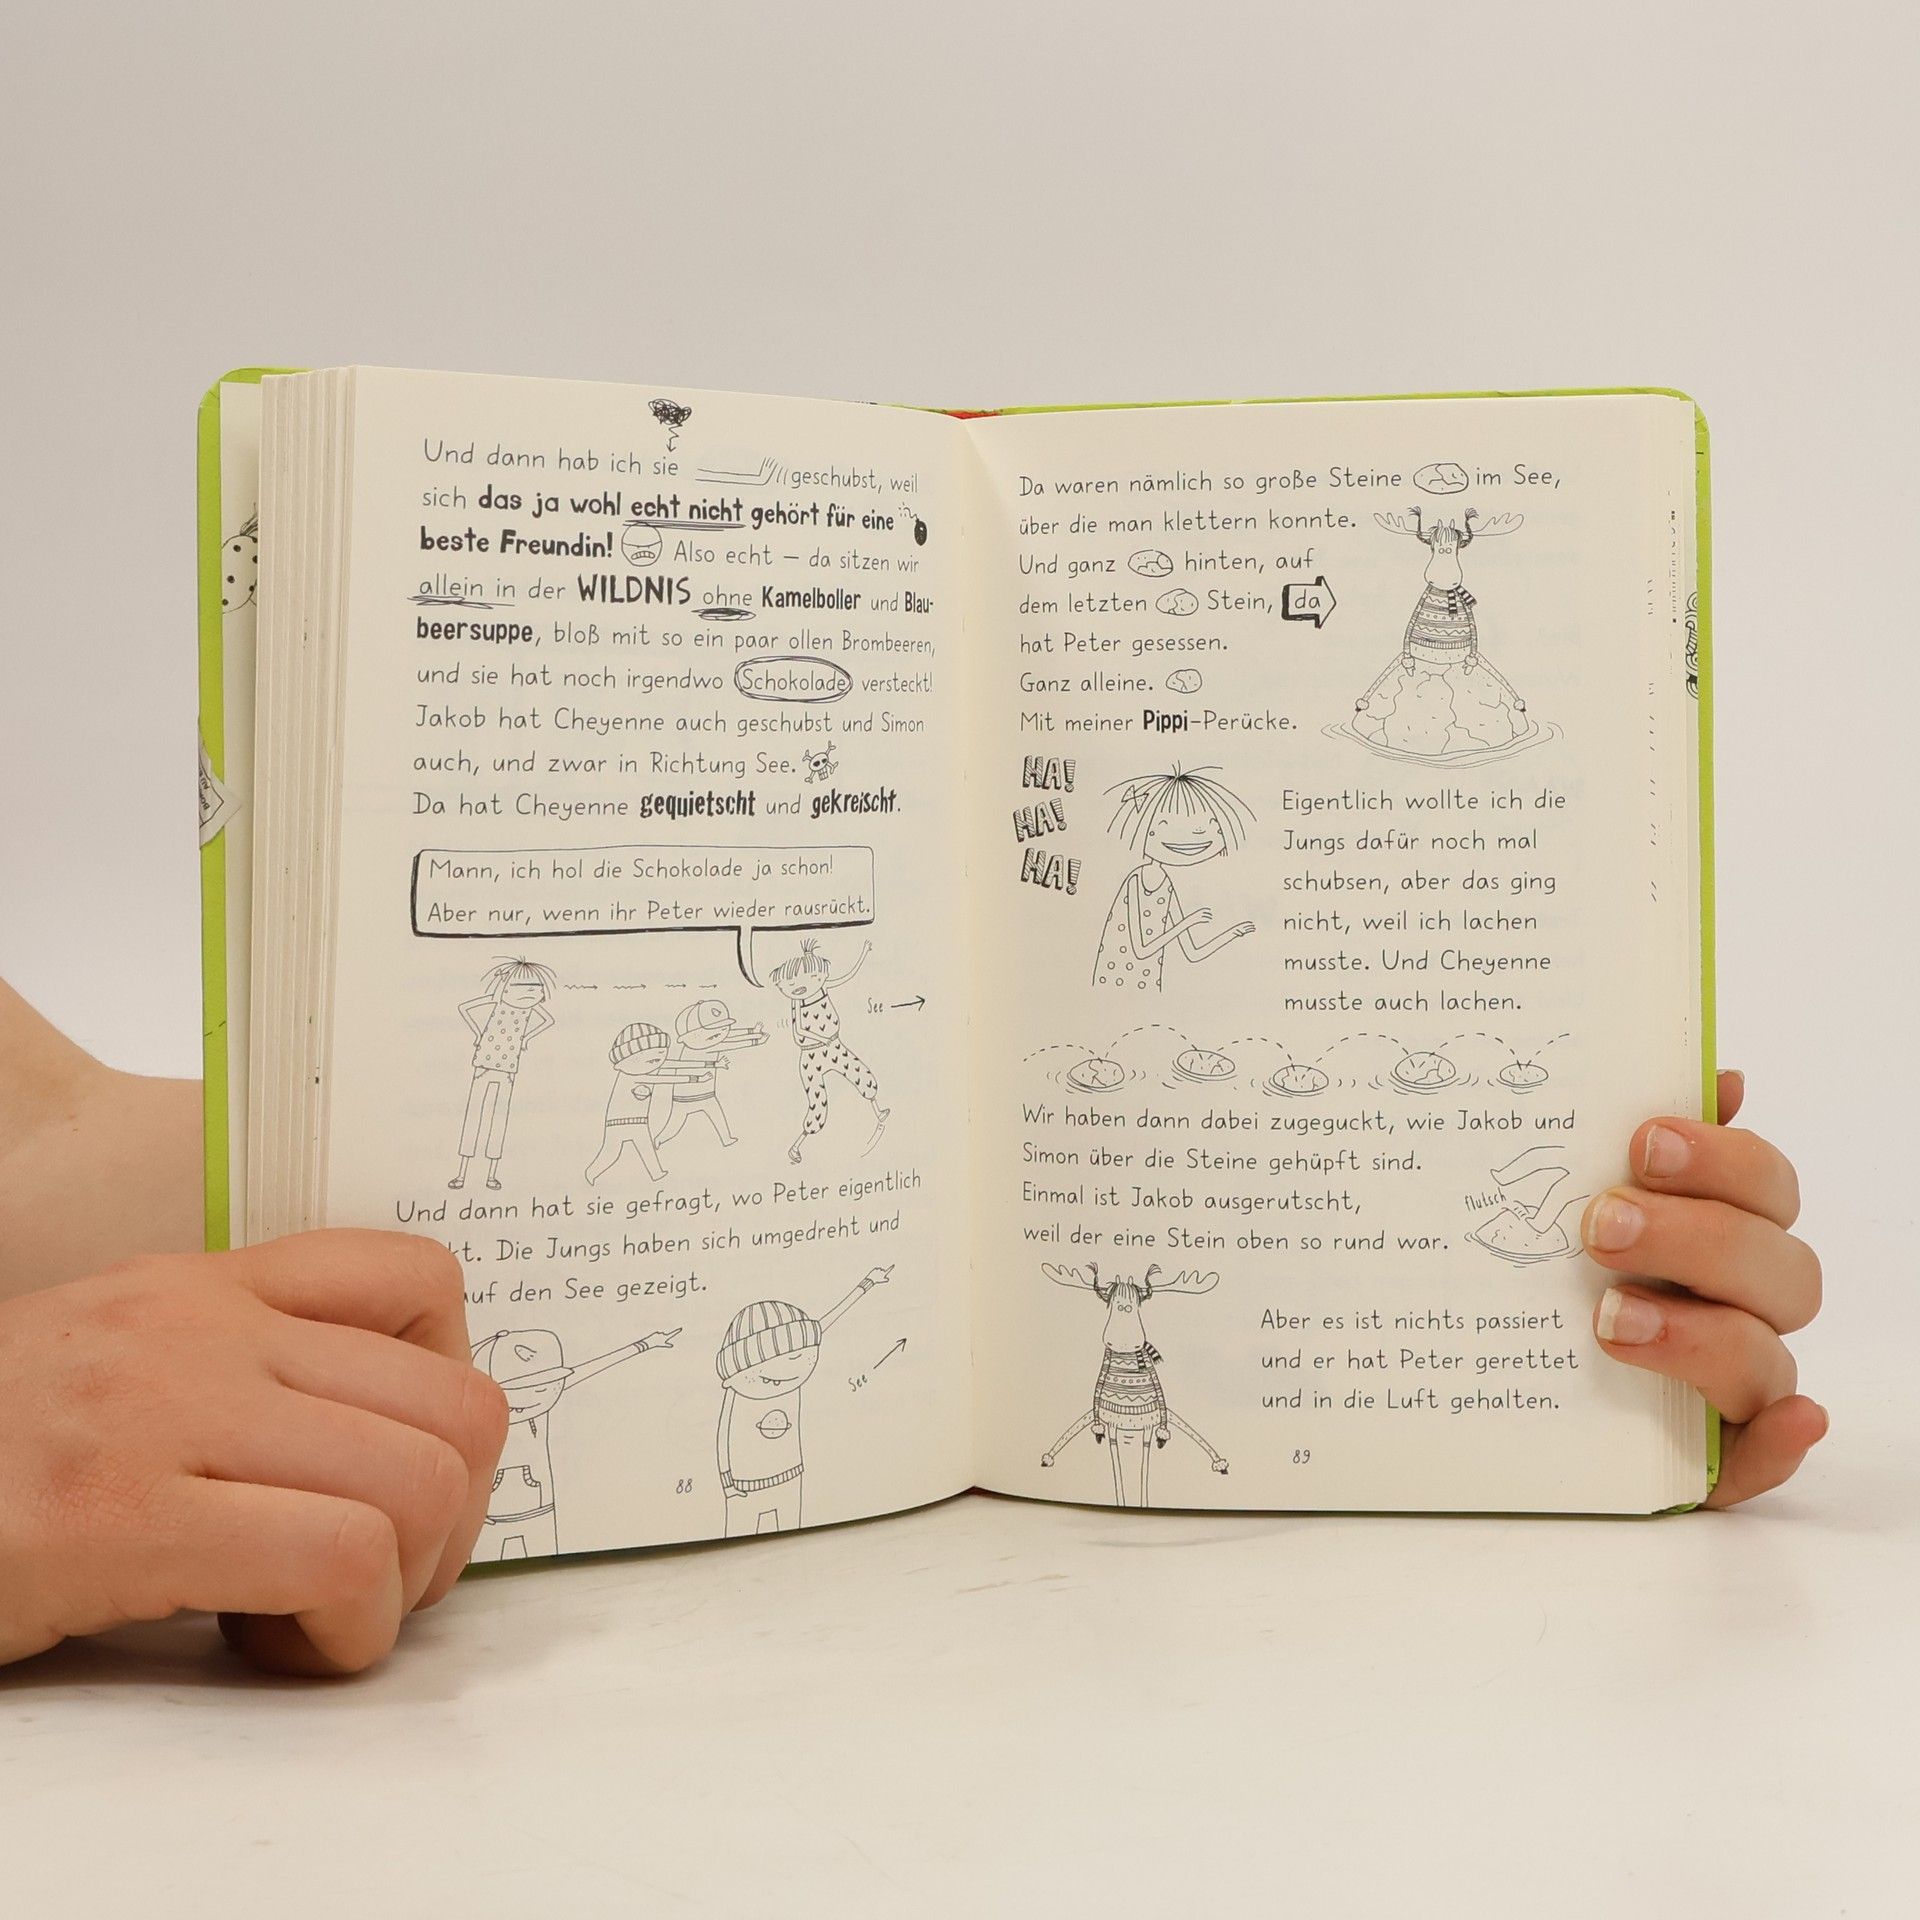 Und dann hab ich sie geschubst, weil
sich das ja wohl echt nicht gehört für eine
beste Freundin! Also echt – da sitzen wir
allein in der WILDNIS ohne Kamelboller und Blau-
beersuppe, bloß mit so ein paar ollen Brombeeren,
und sie hat noch irgendwo Schokolade versteckt!
Jakob hat Cheyenne auch geschubst und Simon
auch, und zwar in Richtung See.
Da hat Cheyenne gequietscht und gekreischt.
Mann, ich hol die Schokolade ja schon!
Aber nur, wenn ihr Peter wieder rausrückt.
See
Und dann hat sie gefragt, wo Peter eigentlich
Die Jungs haben sich umgedreht und
auf den See gezeigt.
See
88
Da waren nämlich so große Steine im See,
über die man klettern konnte.
Und ganz hinten, auf
dem letzten Stein, da
hat Peter gesessen.
Ganz alleine.
Mit meiner Pippi-Perücke.
HA!
HA!
HA!
Eigentlich wollte ich die
Jungs dafür noch mal
schubsen, aber das ging
nicht, weil ich lachen
musste. Und Cheyenne
musste auch lachen.
Wir haben dann dabei zugeguckt, wie Jakob und
Simon über die Steine gehüpft sind.
Einmal ist Jakob ausgerutscht,
weil der eine Stein oben so rund war.
flutsch
Aber es ist nichts passiert
und er hat Peter gerettet
und in die Luft gehalten.
89